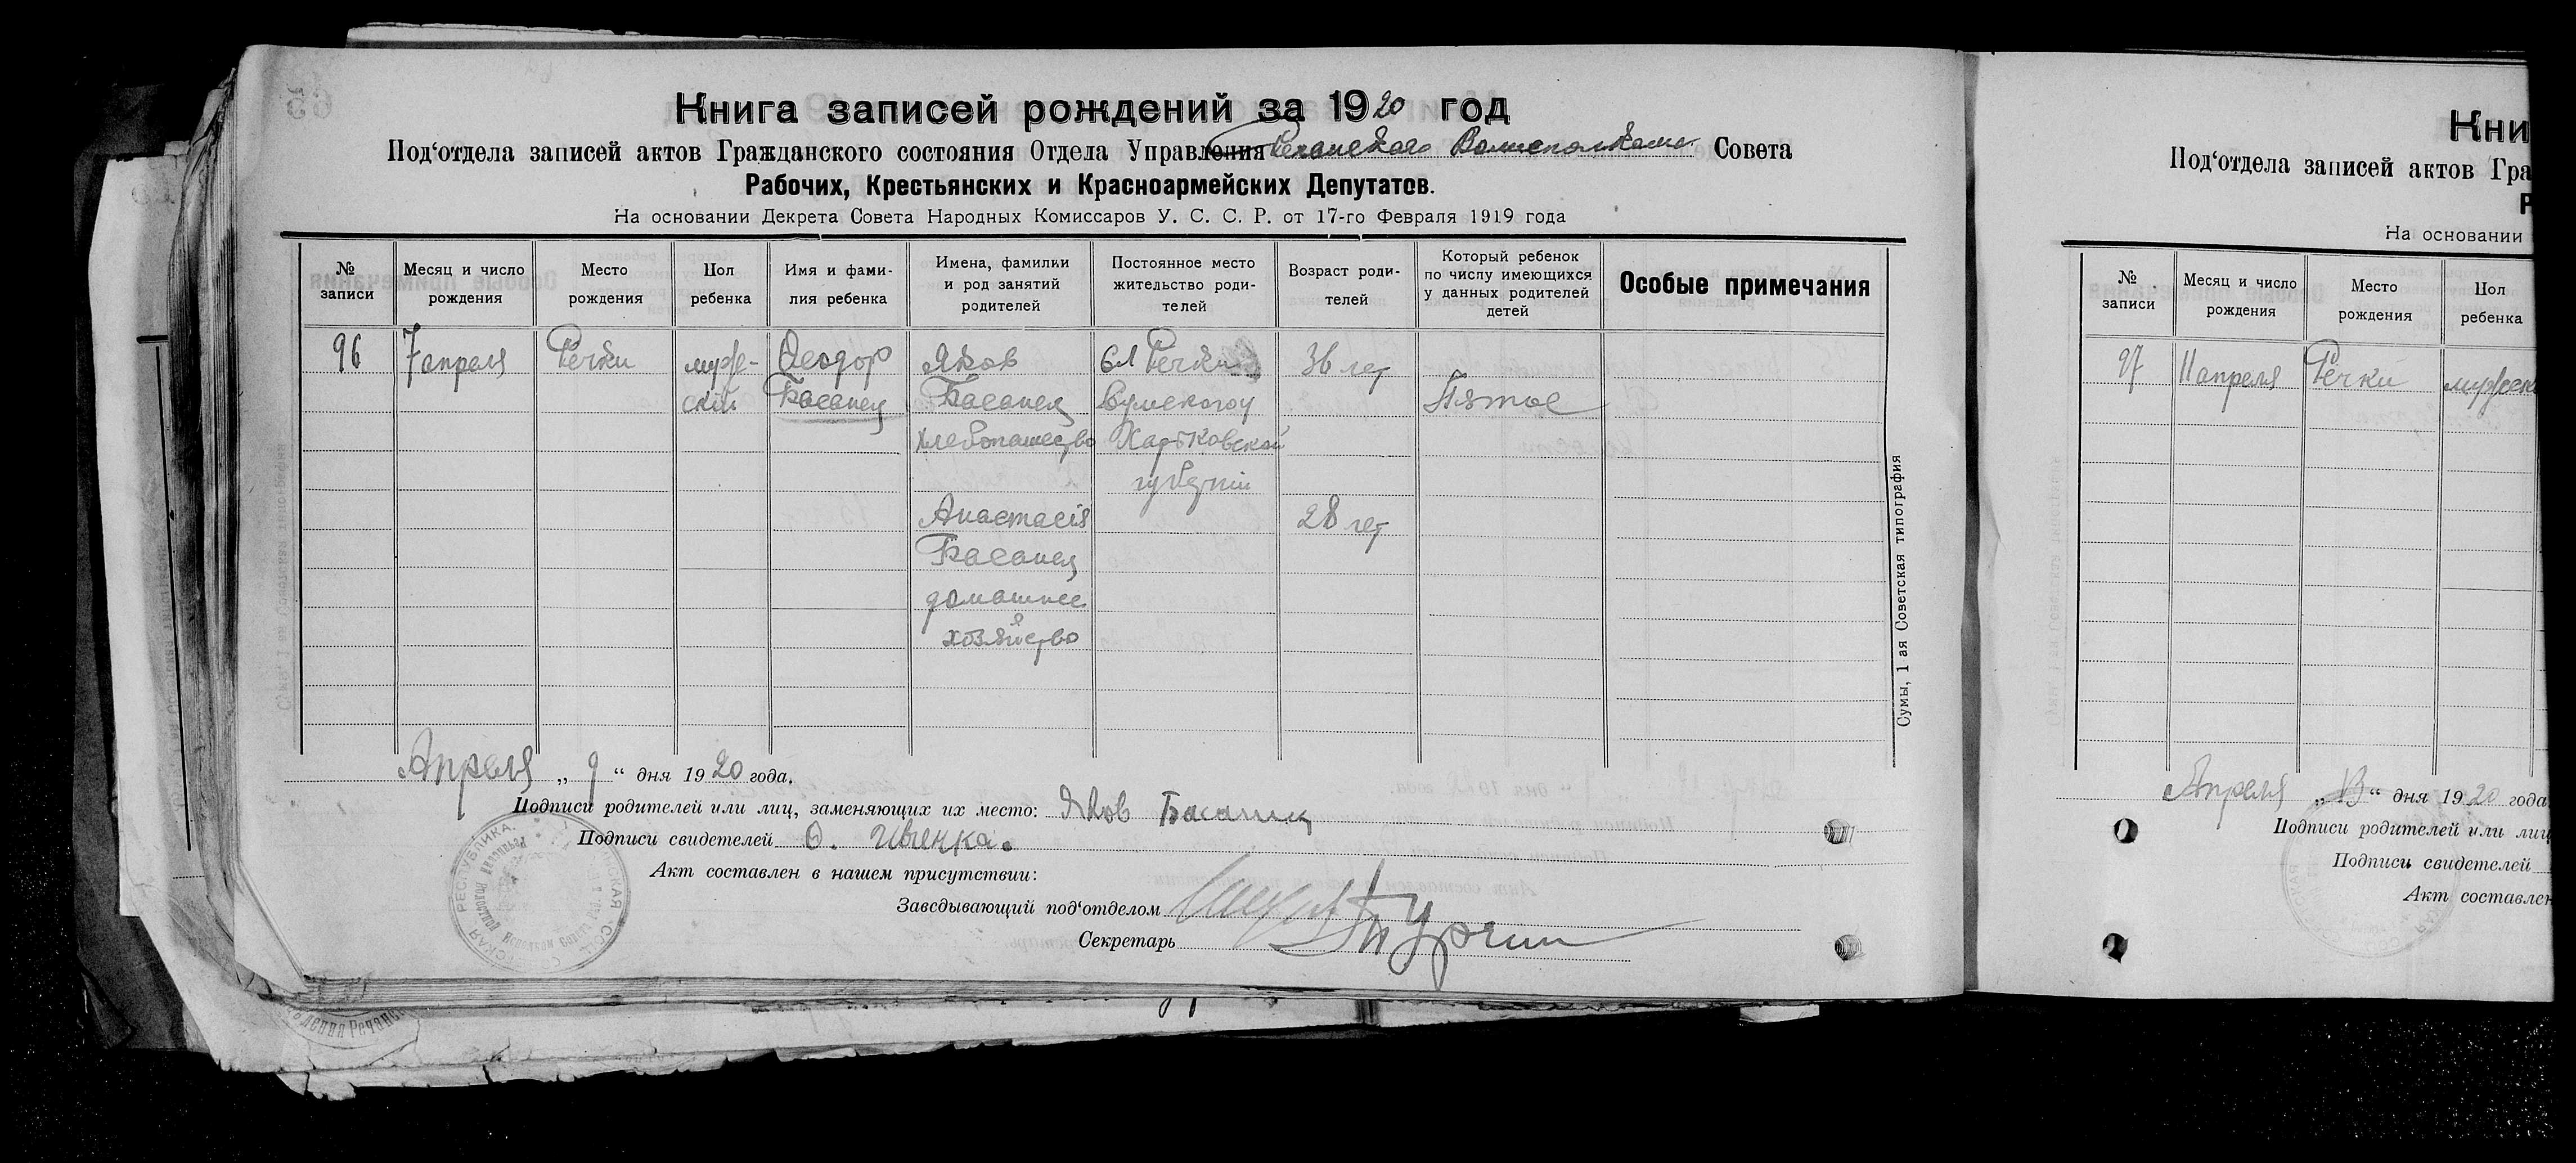 Книга записей рождений за 1920 год
Под‘отдела записей актов Гражданского состояния Отдела Управления Речанского Волисполкома Совета
Рабочих, Крестьянских и Красноармейских Депутатов.
На основании Декрета Совета Народных Комиссаров У. С. С. Р. от 17-го Февраля 1919 года
№ записи
Месяц и число рождения
Место рождения
Пол ребенка
Имя и фами-
лия ребенка
Имена, фамилии
и род занятий
родителей
Постоянное место
жительство роди-
телей
Возраст роди-
телей
Который ребенок
по числу имеющихся
у данных родителей
детей
Особые примечания
96 7 апреля Речки муже- Феодор Яков Сл Речки 36 лет
ский Басанец Басанец Сумского у Пятое
хлебопашество Харьковской
губернii
Анастасiя 28 лет
Басанец
домашнее
хозяйство
Апреля „ 9 “ дня 1920 года.
Подписи родителей или лиц, заменяющих их место: Яков Басанец
Подписи свидетелей О.
Акт составлен в нашем присутствии:
Заведывающий под‘отделом
Секретарь
Сумы, 1 ая Советская типография
Кни
Под‘отдела записей актов Гра
Р
На основании
№ записи
Месяц и число рождения
Место рождения
Пол ребенка
97 11 апреля Речки мужеск
Апреля „ 13 “ дня 1920 года
Подписи родителей или лиц
Подписи свидетелей
Акт составлен